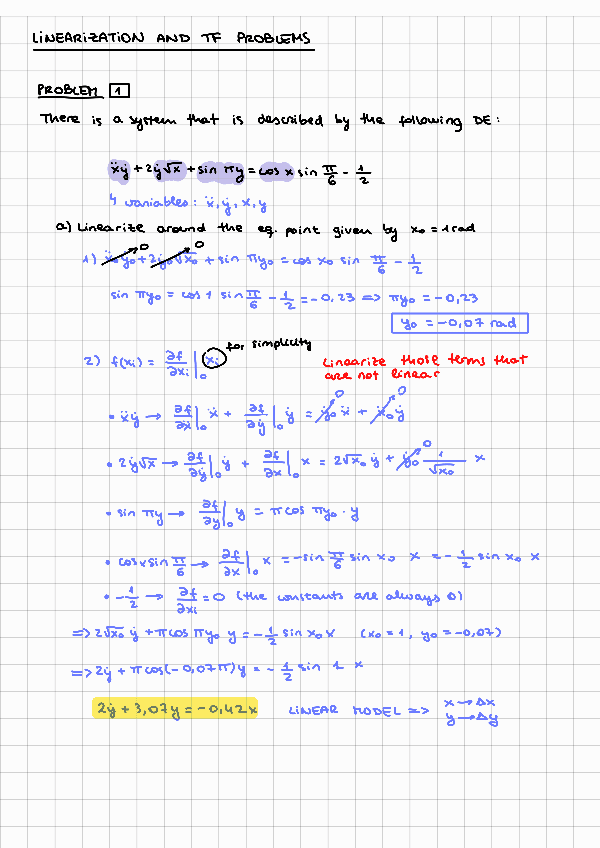 LINEARIZATION AND TF PROBLEMS
PROBLEM 1
There is a system that is described by the following DE:
ẍẏ + 2ẏ√x + sin πy = cos x sin π/6 - 1/2
4 variables: ẍ, ẏ, x, y
a) Linearize around the eq. point given by x₀ = 1 rad
1) ẍ₀ẏ₀ + 2ẏ₀√x₀ + sin πy₀ = cos x₀ sin π/6 - 1/2
0 0
sin πy₀ = cos 1 sin π/6 - 1/2 = -0,23 => πy₀ = -0,23
y₀ = -0,07 rad
2) f(xᵢ) = ∂f/∂xᵢ|₀ xᵢ for simplicity
Linearize those terms that are not linear
• ẍẏ → ∂f/∂ẍ|₀ ẍ + ∂f/∂ẏ|₀ ẏ = ẏ₀ẍ + ẍ₀ẏ
0 0
• 2ẏ√x → ∂f/∂ẏ|₀ ẏ + ∂f/∂x|₀ x = 2√x₀ ẏ + ẏ₀ 1/√x₀ x
0
• sin πy → ∂f/∂y|₀ y = π cos πy₀ · y
• cos x sin π/6 → ∂f/∂x|₀ x = -sin π/6 sin x₀ x = -1/2 sin x₀ x
• -1/2 → ∂f/∂xᵢ = 0 (the constants are always 0)
=> 2√x₀ ẏ + π cos πy₀ y = -1/2 sin x₀ x (x₀ = 1, y₀ = -0,07)
=> 2ẏ + π cos(-0,07π)y = -1/2 sin 1 x
2ẏ + 3,07y = -0,42x LINEAR MODEL => x → Δx
y → Δy